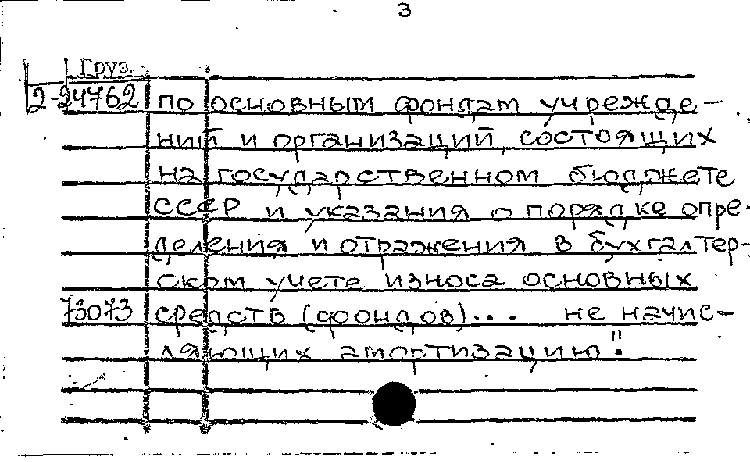 3
Груз.
2-24762 по основным фондам учрежде-
ний и организаций, состоящих
на государственном бюджете
СССР и указания о порядке опре-
деления и отражения в бухгалтер-
ском учете износа основных
73073 средств (фондов)... не начис-
ляющих амортизацию".